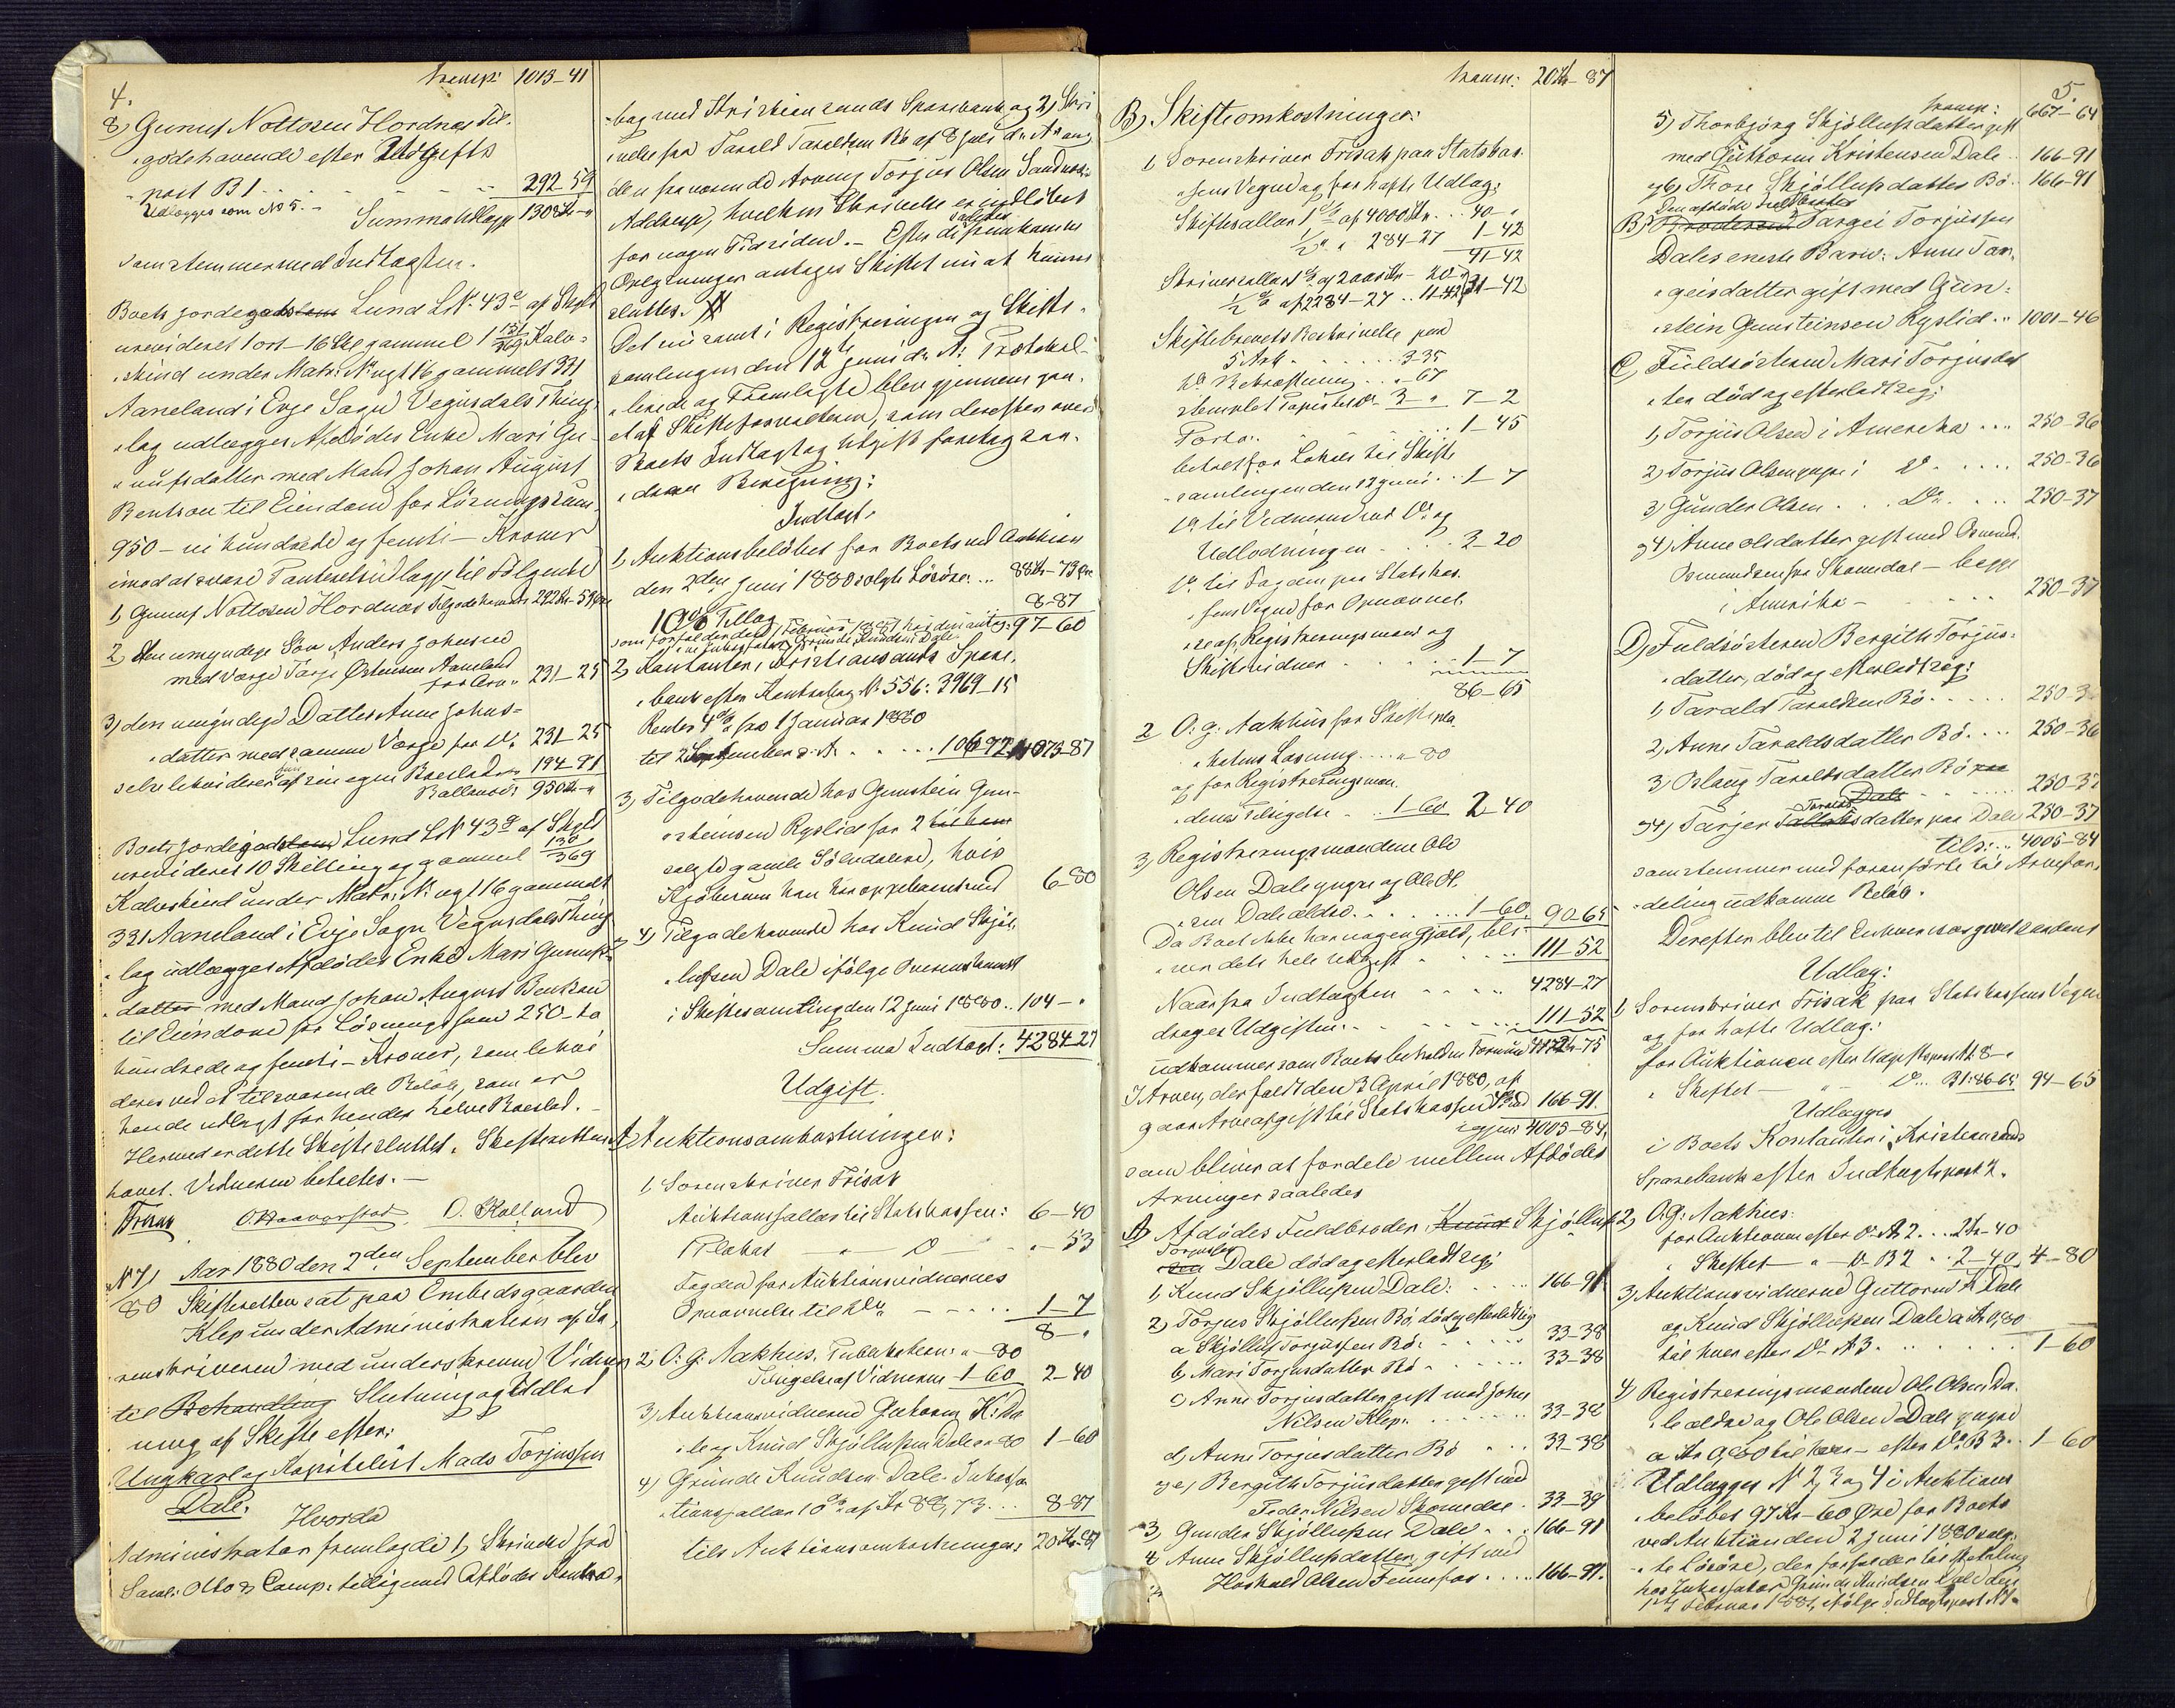 4.
transp: 1013-41
8) Gunuf Nottosen Hordnes Til-
godehavende efter Udgifts
post B 1 292-59
Udlægges som No 5. - Summa Udlæg 1308 Kr-"
samstemmer med Indtægten.
Boets jordegods Lund L.N. 43a af Skyld
urevideret 1 ort-16 Skg gammel 1 151/369 Kalv-
skind under Matr. N. nyt 16 gammelt 331
Aaneland i Evje Sogn Vegusdals Thing-
lag udlægges Afdødes Enke Mari Gu-
nufsdatter med Mand Johan August
Bentson til Eiendom for Løsningssum
950 - ni hundrede og femti - Kroner
imod at svare Panteretsudlæg til Følgende
1, Gunuf Nottosen Hordnes Tilgodehavende 292 Kr-59 Øre
2, den umyndige Søn Anders Johnsen
med Værge Tarje Østensen Aaneland
for Arv " 231-25
3, den umyndige Datter Anne Johns-
datter med samme Værge for do. 231-25
selv likviderer af sin egen Boeslod 194-91
Ballance: 950 Kr-"
Boets jordegods Lund L.N. 43a af Skyld
urevideret 10 Skilling og gammel 130/369
Kalvskind under Matr. N. nyt 16 gammelt
331 Aaneland i Evje Sogn Vegusdals Thing-
lag udlægges Afdødes Enke Mari Gunufs-
datter med Mand Johan August Bentson
til Eiendom for Løsningssum 250 - to
hundrede og femti - Kroner, som likvi-
deres ved et tilsvarende Beløb, som er
hende udlagt for hendes halve Boeslod. -
Hermed er dette Skifte sluttet. Skifteretten
hævet. Vidnerne betaltes. -
Frisak O. Haaverstad O. Kalland
N 7) Aar 1880 den 2den September blev
80 Skifteretten sat paa Embedsgaarden
Klep under Administration af So-
renskriveren med underskrevne Vidner
til Behandling Slutning og Udlod-
ning af Skifte efter:
Ungkarl og Kapitalist Mads Torjussen
Dale.
Hvorda
Administrator fremlagde 1, Skrivelse fra
Saml: Otto & Comp: tilligemed Afdødes Kontra-
bog med Kristiansands Sparebank og 2, Skri-
velse fra Tarald Taraldsen Bø af 8 Juli d. A. ang
den fraværende Arving Torjus Olsen Sandnes's
Adresse, hvilken Skrivelse er indløbet
for nogen Tid siden. - Efter de fremkomne
Oplysninger antages Skiftet nu at kunne
sluttes. #
Det nu samt i Registreringen og Skifte-
samlingen den 12te Juni d. A: Protokol-
lerede og Fremlagte blev gjennemgaa-
et af Skifteforvalteren, som derefter over
Boets Indtægt og Udgift foretog saa-
dan Beregning:
Indtægt.
1, Auktionsbeløbet for Boets ved Auktion
den 2den Juni 1880 solgte Løsøre: 88 Kr-73 Øre
10% Tillæg 8-87
som forfalder den 1 Februar 1881 hos den antag- 97-60
ne Inkassator Grunde Knudsen Dale.
2, Kontanter i Kristiansands Spare-
bank efter Kontrabog No 556: 3969-15
Renter 4% fra 1 Januar 1880
til 2 September s. A. 106-72 4073-87
3, Tilgodehavende hos Gunstein Gun-
steinsen Ryslid for 2 til ham
solgte gamle Sølvdalere, hvis
Kjøbesum han har oppebaaret med 6-80
4, Tilgodehavende hos Knud Skjøl-
lufsen Dale ifølge Overenskomst
i Skiftesamling den 12 Juni 1880 104-"
Summa Indtægt: 4284-27
Udgift.
A, Auktionsomkostninger:
1, Sorenskriver Frisak
Auktionssallær til Statskassen: 6-40
1 Plakat - " - do - " -53
Lagden for Auktionsvidnernes
Opnævnelse til do - 1-7
8-"
2, O. G. Aakhus. Publikation: "-80
Tilsigelse af Vidnerne 1-60 2-40
3, Auktionsvidnerne Guttorm K. Da-
le og Knud Skjøllufsen Dale a "80 1-60
4, Grunde Knudsen Dale Inkassa-
tionssallær 10% af Kr 88,73 8-87
tils Auktionsomkostninger 20 Kr-87
transp: 20 Kr-87
B, Skifteomkostninger:
1, Sorenskriver Frisak paa Statskas-
sens Vegne og for havte Udlæg:
Skiftesallær 1% af 4000 Kr 40-"
1/2% " 284-27 1-42
41-42
Skriversallær 1% af 2000 Kr 20-"
1/2% af 2284-27 11-42 31-42
Skiftebrevets Beskrivelse paa
5 Ark 3-35
do Bekræftning "-67
stemplet Papir til do 3-" 7-2
Porto: 1-45
betalt for Lokale til Skifte-
samlingen den 12 Juni 1-7
do til Vidnerne ved do og
Udlodningen 3-20
do til Lagden paa Statskas-
sens Vegne for Opnævnel-
se af Registreringsmænd og
Skiftevidner 1-7
86-65
2, O. G. Aakhus for Skifte pla-
katens Læsning "-80
og for Registreringsmæn-
denes Tilsigelse 1-60 2-40
3, Registreringsmændene Ole
Olsen Dale yngre og Ole Ol-
sen Dale ældre 1-60 90-65
Da Boet ikke har nogen Gjæld, bli-
ver dets hele Udgift 111-52
Naar fra Indtægten 4284-27
drages Udgiften: 111-52
udkommer som Boets beholdne Formue 4172 Kr-75
I Arven, der faldt den 3 April 1880, af-
gaar Arveafgift til Statskassen med 166-91
igjen 4005-84,
som bliver at fordele mellem Afdødes
Arvinger saaledes
A, Afdødes Fuldbroder Knud Skjølluf
Torjussen Dale død og efterladt sig:
1, Knud Skjøllufsen Dale: 166-91
2, Torjus Skjøllufsen Bø, død og efterladt sig
a Skjølluf Torjussen Bø: 33-38
b, Mari Torjusdatter Bø 33-38
c, Anne Torjusdatter gift med Johns
Nilsen Klep: 33-38
d, Anne Torjusdatter Bø 33-38
og e, Bergith Torjusdatter gift med
Peder Nilsen Skomedal 33-39
3, Gunder Skjøllufsen Dale 166-91
4, Anne Skjøllufsdatter, gift med
Haavald Olsen Fennefos 166-91.
5.
transp: 667-64
5, Thorbjørg Skjøllufsdatter gift
med Guttorm Kristensen Dale 166-91
og 6, Thore Skjøllufsdatter Bø 166-91
B, Den afdøde Fuldbroder Broderen Targei Torjussen
Dales eneste Barn: Anne Tar-
geisdatter gift med Gun-
stein Gunsteinsen Ryslid 1001-46
C, Fuldsøsteren Mari Torjusdat-
ter død og efterladt sig:
1, Torjus Olsen i Amerika 250-36
2, Torjus Olsen yngre i do 250-36
3, Gunder Olsen do 250-37
og 4, Anne Olsdatter gift med Osmund
Osmundsen fra Skomedal - begge
i Amerika - 250-37
D, Fuldsøsteren Bergith Torjus-
datter, død og efterladt sig:
1, Tarald Taraldsen Bø 250-3
2, Anne Taraldsdatter Bø 250-36
3, Oslaug Taraldsdatter Bø paa
Dale 250-37
og 4, Tarjer Taraldsdatter paa Dale 250-37
tils: 4005-84
samstemmer med foranførte til Arvefor-
deling udkomne Beløb.
Derefter blev til Enhver især gjort saadant
Udlæg:
1, Sorenskriver Frisak paa Statskassens Vegne
og for havte Udlæg:
for Auktionen efter Udgiftspost A1: 8-"
" Skiftet - " - do B1: 86-65 94-65
Udlægges
i Boets Kontanter i Kristiansands
Sparebank efter Indtægtspost 2.
2, O. G. Aakhus:
for Auktionen efter do A2 2 Kr-40
" Skiftet - " - do B2 2-40 4-80
3, Auktionsvidnerne Guttorm K Dale
og Knud Skjøllufsen Dale a Kr 0,80
til hver efter do A3 1-60
4, Registreringsmændene Ole Olsen Da-
le ældre og Ole Olsen Dale yngre
a Kr 0,80 til hver - efter do B3 1-60
Udlægges N 2, 3 og 4 i Auktions-
beløbet 97 Kr-60 Øre for Boets
ved Auktion den 2 Juni 1880 solg-
te Løsøre, der forfalder til Betaling
hos Inkassator Grunde Knudsen Dale den
1ste Februar 1881, ifølge Indtægtspost N 1-